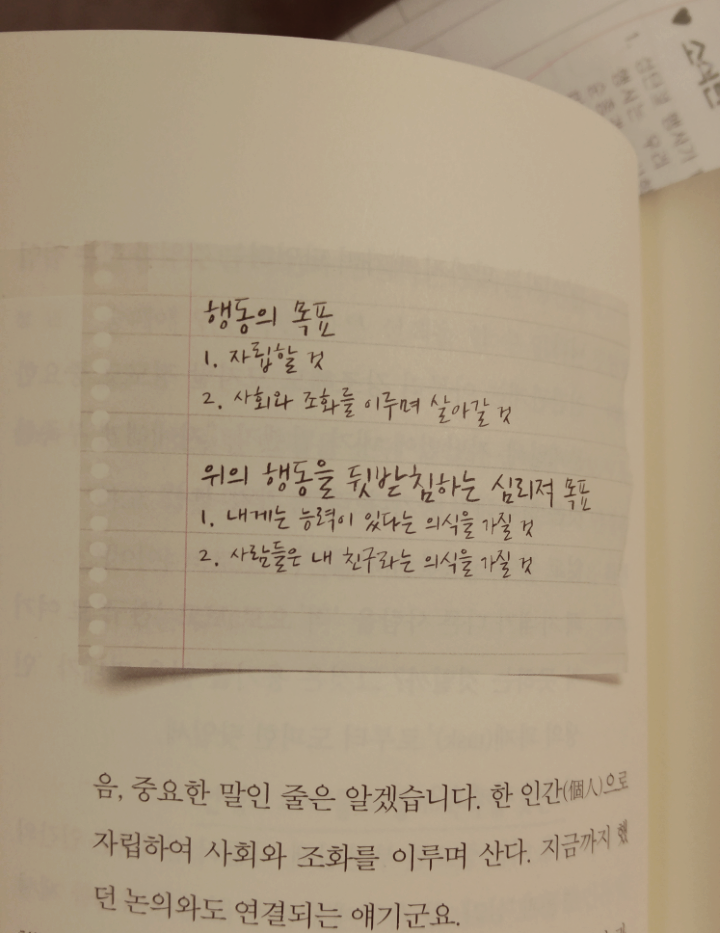 행동의 목표
1. 자립할 것
2. 사회와 조화를 이루며 살아갈 것
위의 행동을 뒷받침하는 심리적 목표
1. 내게는 능력이 있다는 의식을 가질 것
2. 사람들은 내 친구라는 의식을 가질 것
음, 중요한 말인 줄은 알겠습니다. 한 인간(個人)으로
자립하여 사회와 조화를 이루며 산다. 지금까지 했
던 논의와도 연결되는 얘기군요.